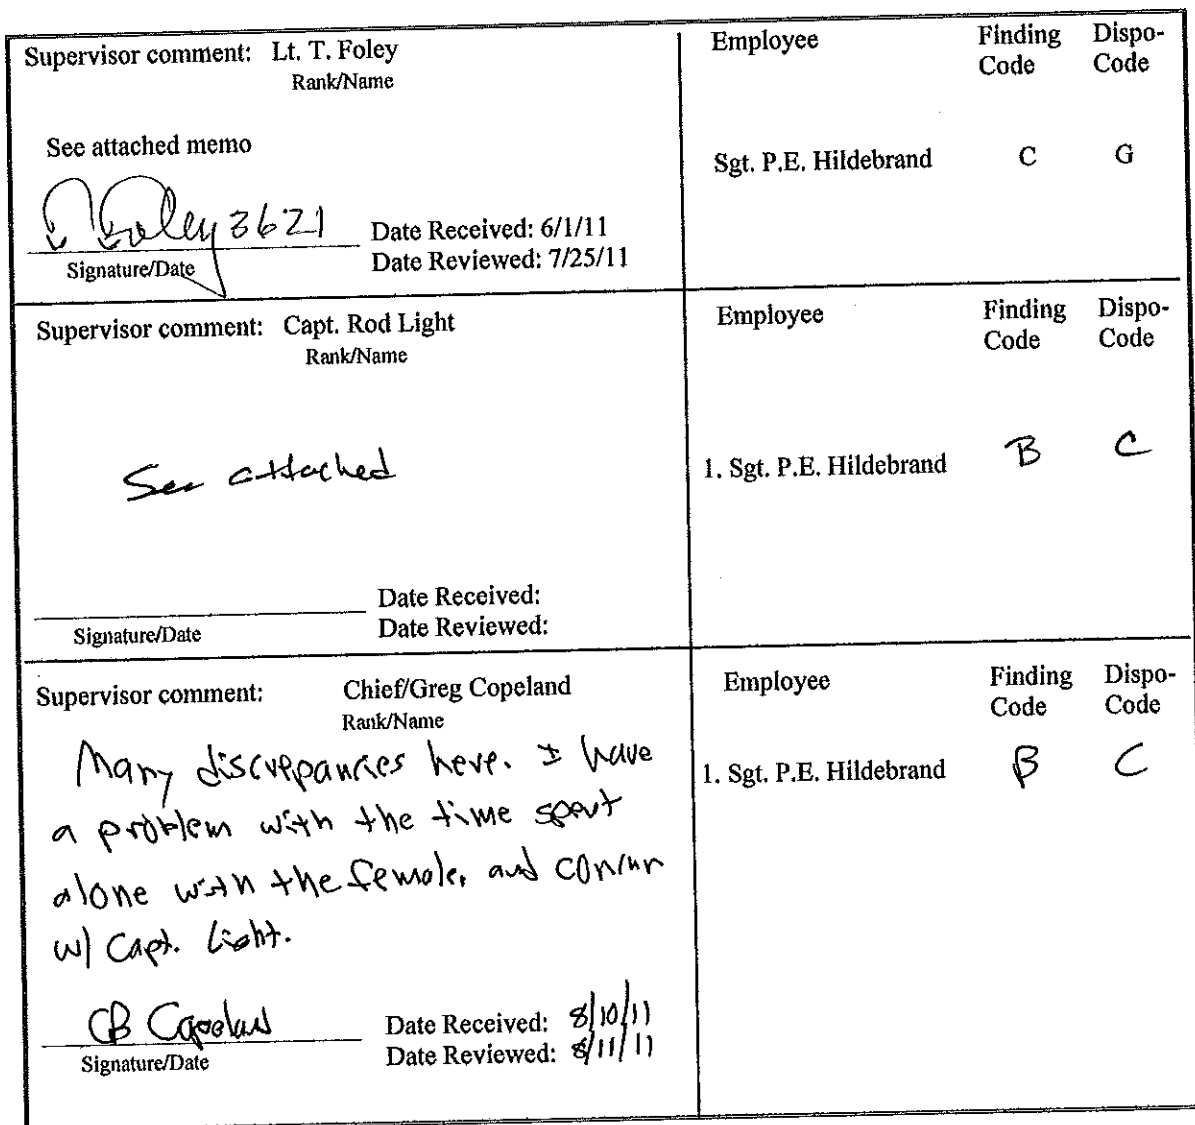 Supervisor comment: Lt. T. Foley
Rank/Name
See attached memo
Foley 3621
Signature/Date
Date Received: 6/1/11
Date Reviewed: 7/25/11
Employee Finding Code Dispo-Code
Sgt. P.E. Hildebrand C G
Supervisor comment: Capt. Rod Light
Rank/Name
See attached
Signature/Date
Date Received:
Date Reviewed:
Employee Finding Code Dispo-Code
1. Sgt. P.E. Hildebrand B C
Supervisor comment: Chief/Greg Copeland
Rank/Name
Many discrepancies here. I have
a problem with the time spent
alone with the female, and concur
w/ Capt. Light.
CB Copeland
Signature/Date
Date Received: 8/10/11
Date Reviewed: 8/11/11
Employee Finding Code Dispo-Code
1. Sgt. P.E. Hildebrand B C